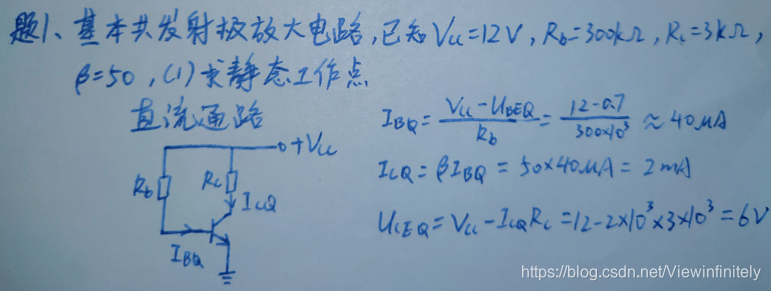 题1、基本共发射极放大电路,已知Vcc=12V,Rb=300kΩ,Rc=3kΩ,
β=50,(1)求静态工作点
直流通路
+Vcc
Rb
Rc
ICQ
IBQ
IBQ=(Vcc-UBEQ)/Rb=(12-0.7)/(300×10³)≈40μA
ICQ=βIBQ=50×40μA=2mA
UCEQ=Vcc-ICQRc=12-2×10³×3×10³=6V
https://blog.csdn.net/Viewinfinitely